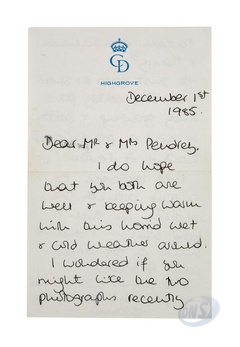 CD
HIGHGROVE
December 1st
1985.
Dear Mr & Mrs Pendrey,
I do hope
that you both are
well & keeping warm
with this horrid wet
& cold weather around.
I wondered if you
might like the two
photographs recently
DNS